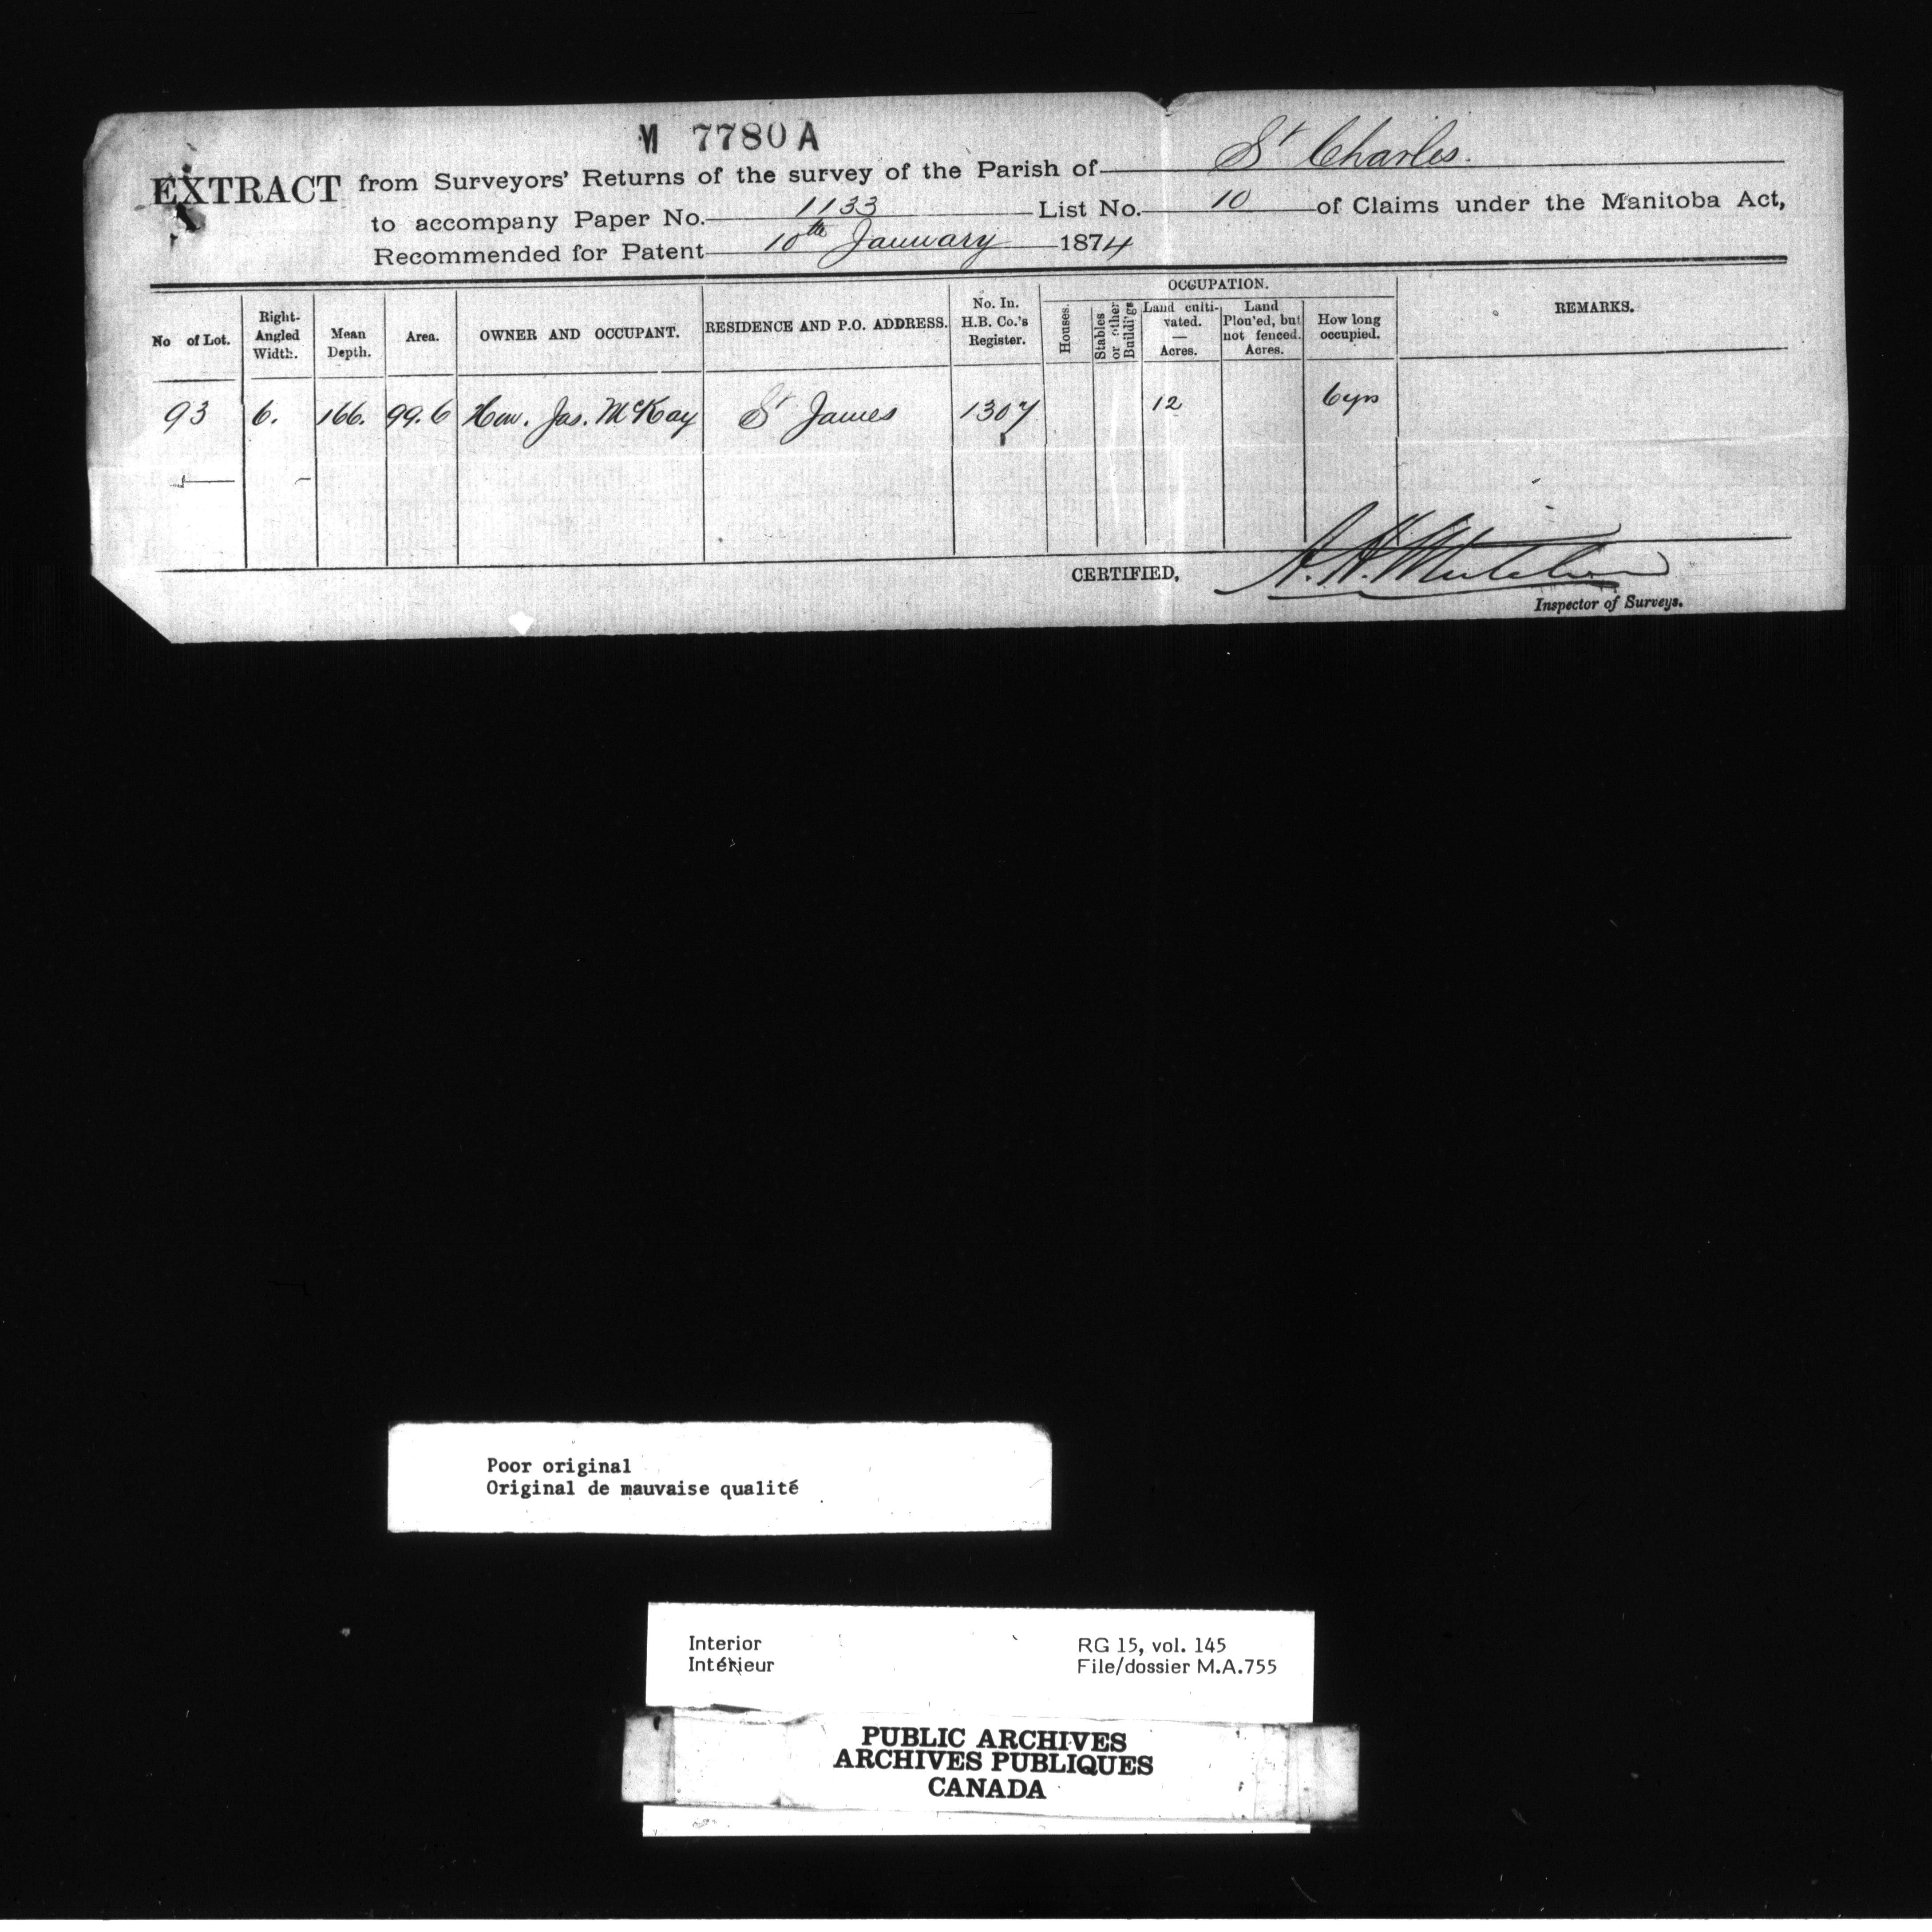 M 7780 A
EXTRACT from Surveyors' Returns of the survey of the Parish of St Charles.
to accompany Paper No. 1133 List No. 10 of Claims under the Manitoba Act,
Recommended for Patent 10th January 1874
OCCUPATION.
No of Lot. Right-Angled Width. Mean Depth. Area. OWNER AND OCCUPANT. RESIDENCE AND P.O. ADDRESS. No. In. H.B. Co.'s Register. Houses. Stables or other Buildi'gs Land culti-vated. — Acres. Land Plou'ed, but not fenced. Acres. How long occupied. REMARKS.
93 6. 166. 99.6 Hon. Jas. McKay St James 1307 12 6 yrs
CERTIFIED,
Inspector of Surveys.
Poor original
Original de mauvaise qualité
Interior RG 15, vol. 145
Intérieur File/dossier M.A.755
PUBLIC ARCHIVES
ARCHIVES PUBLIQUES
CANADA